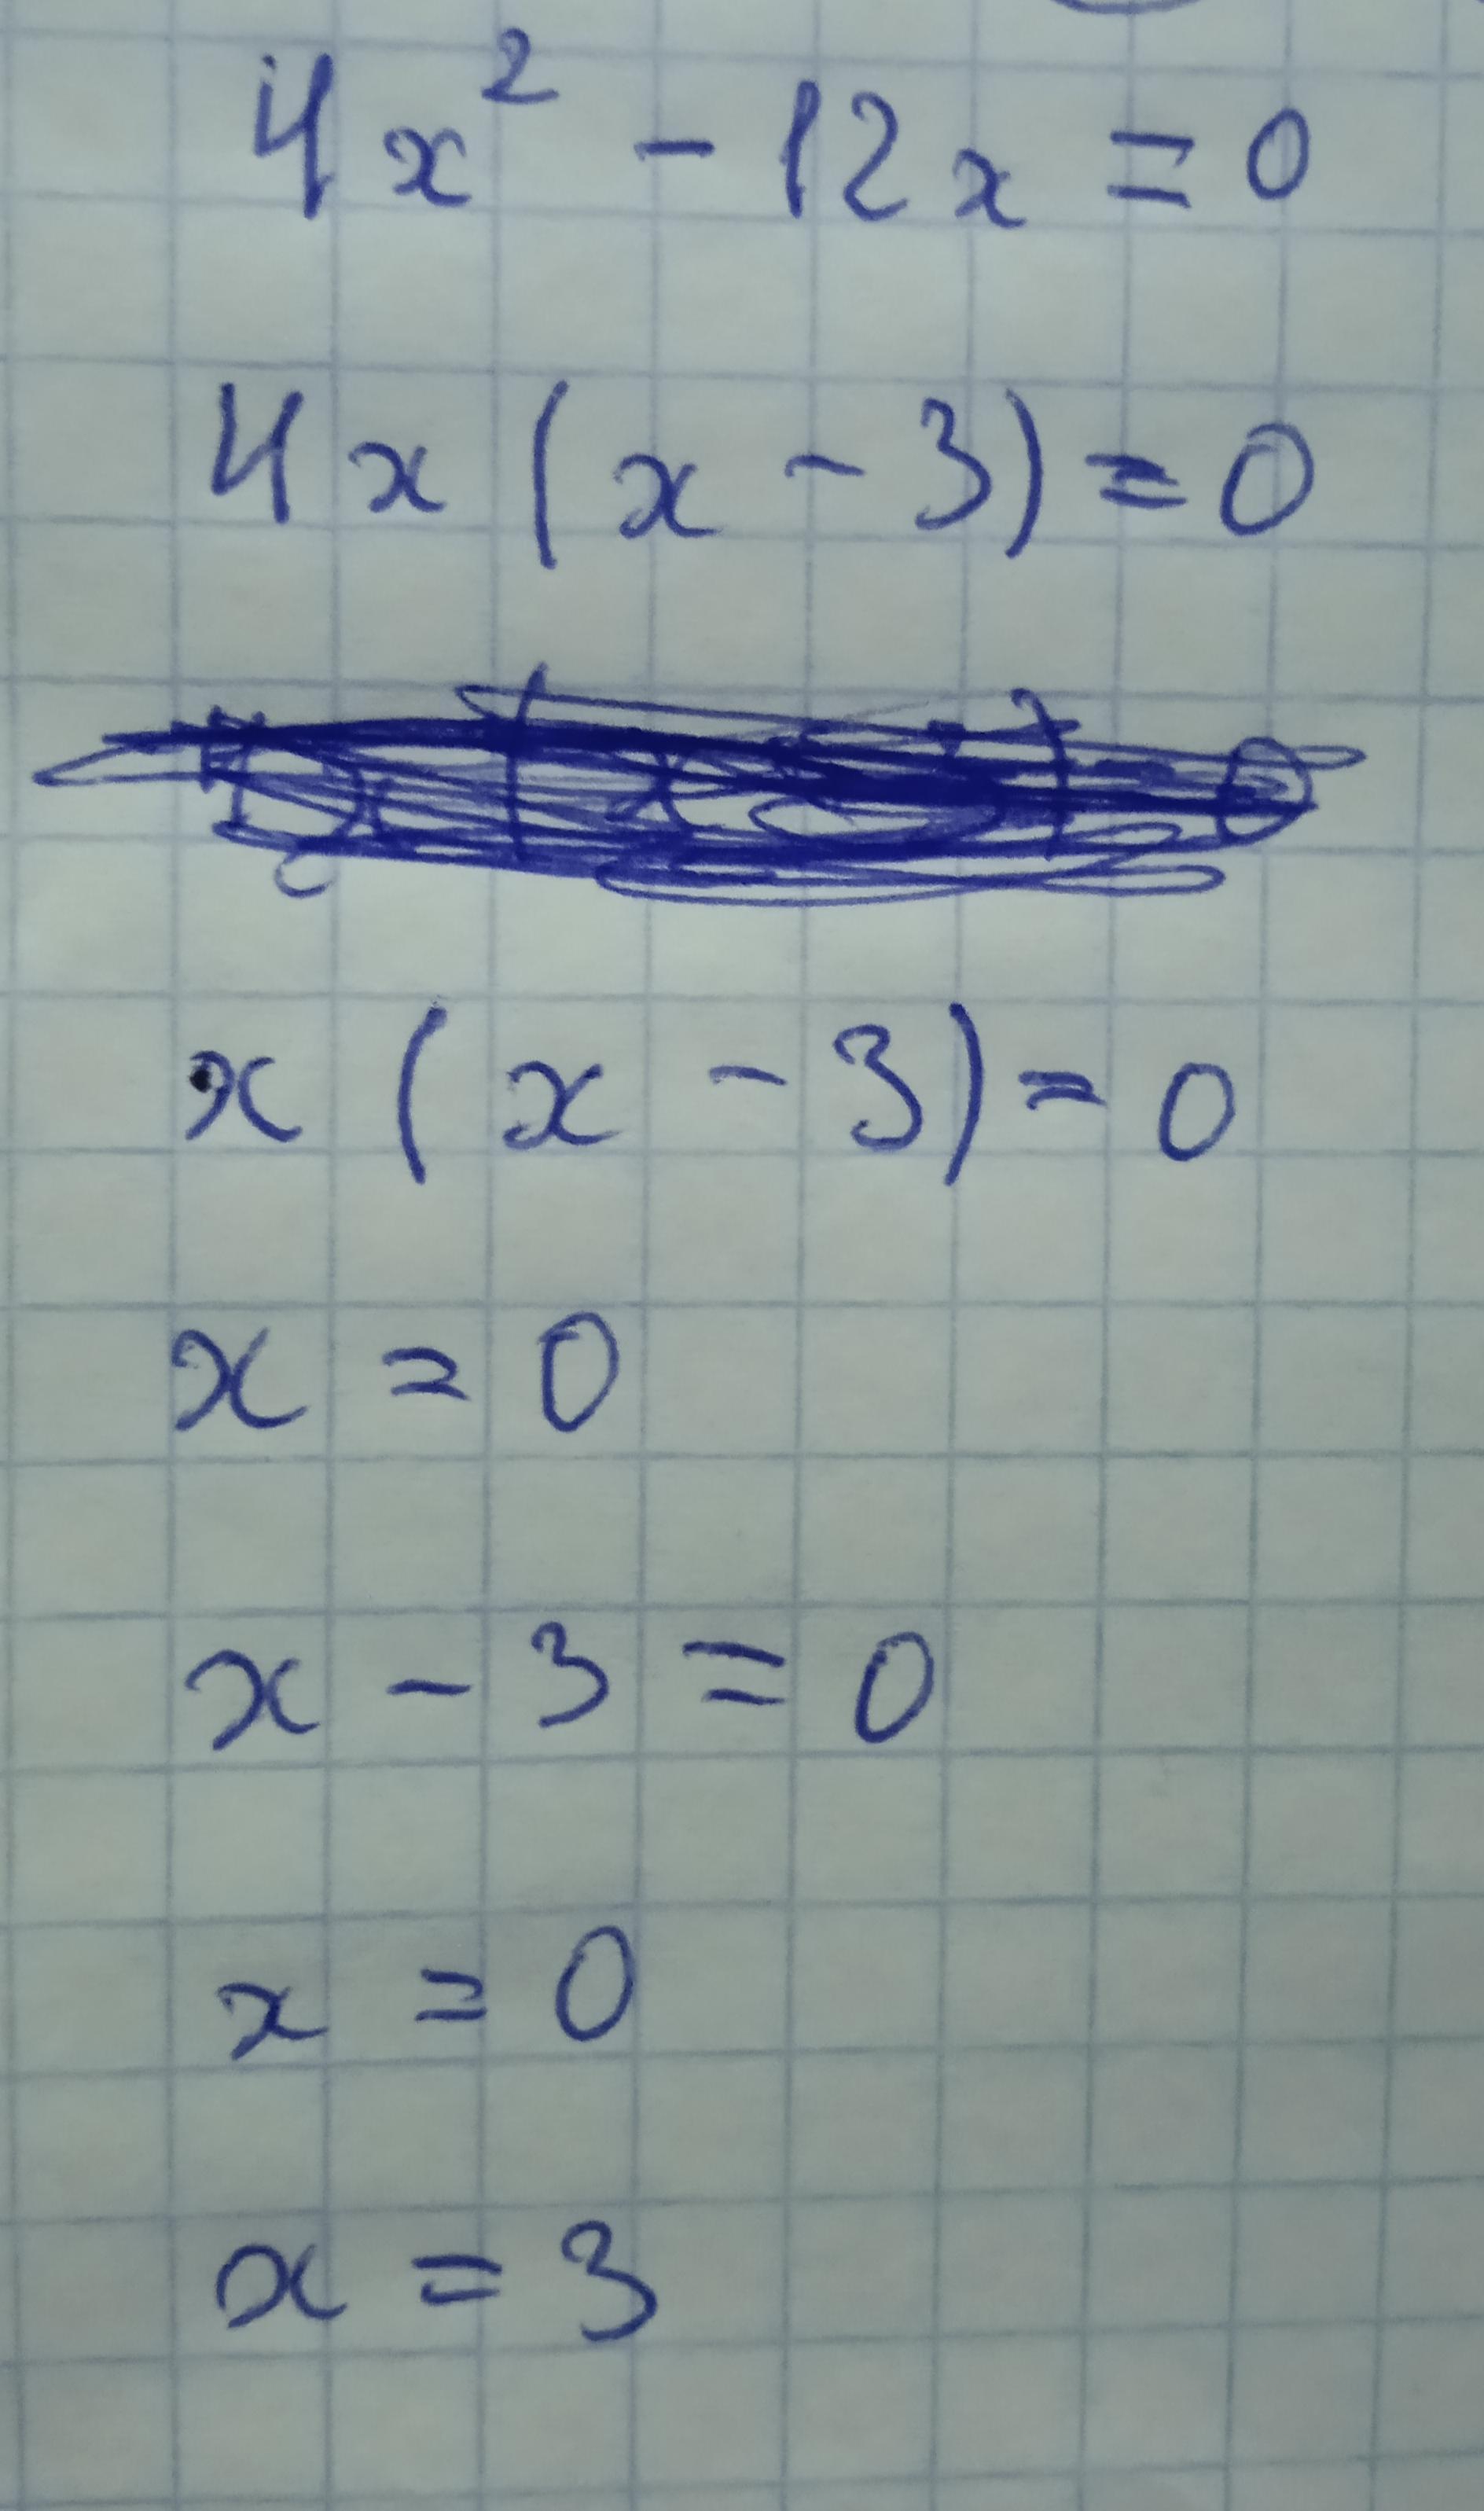 4x² - 12x = 0
4x (x - 3) = 0
x (x - 3) = 0
x = 0
x - 3 = 0
x = 0
x = 3